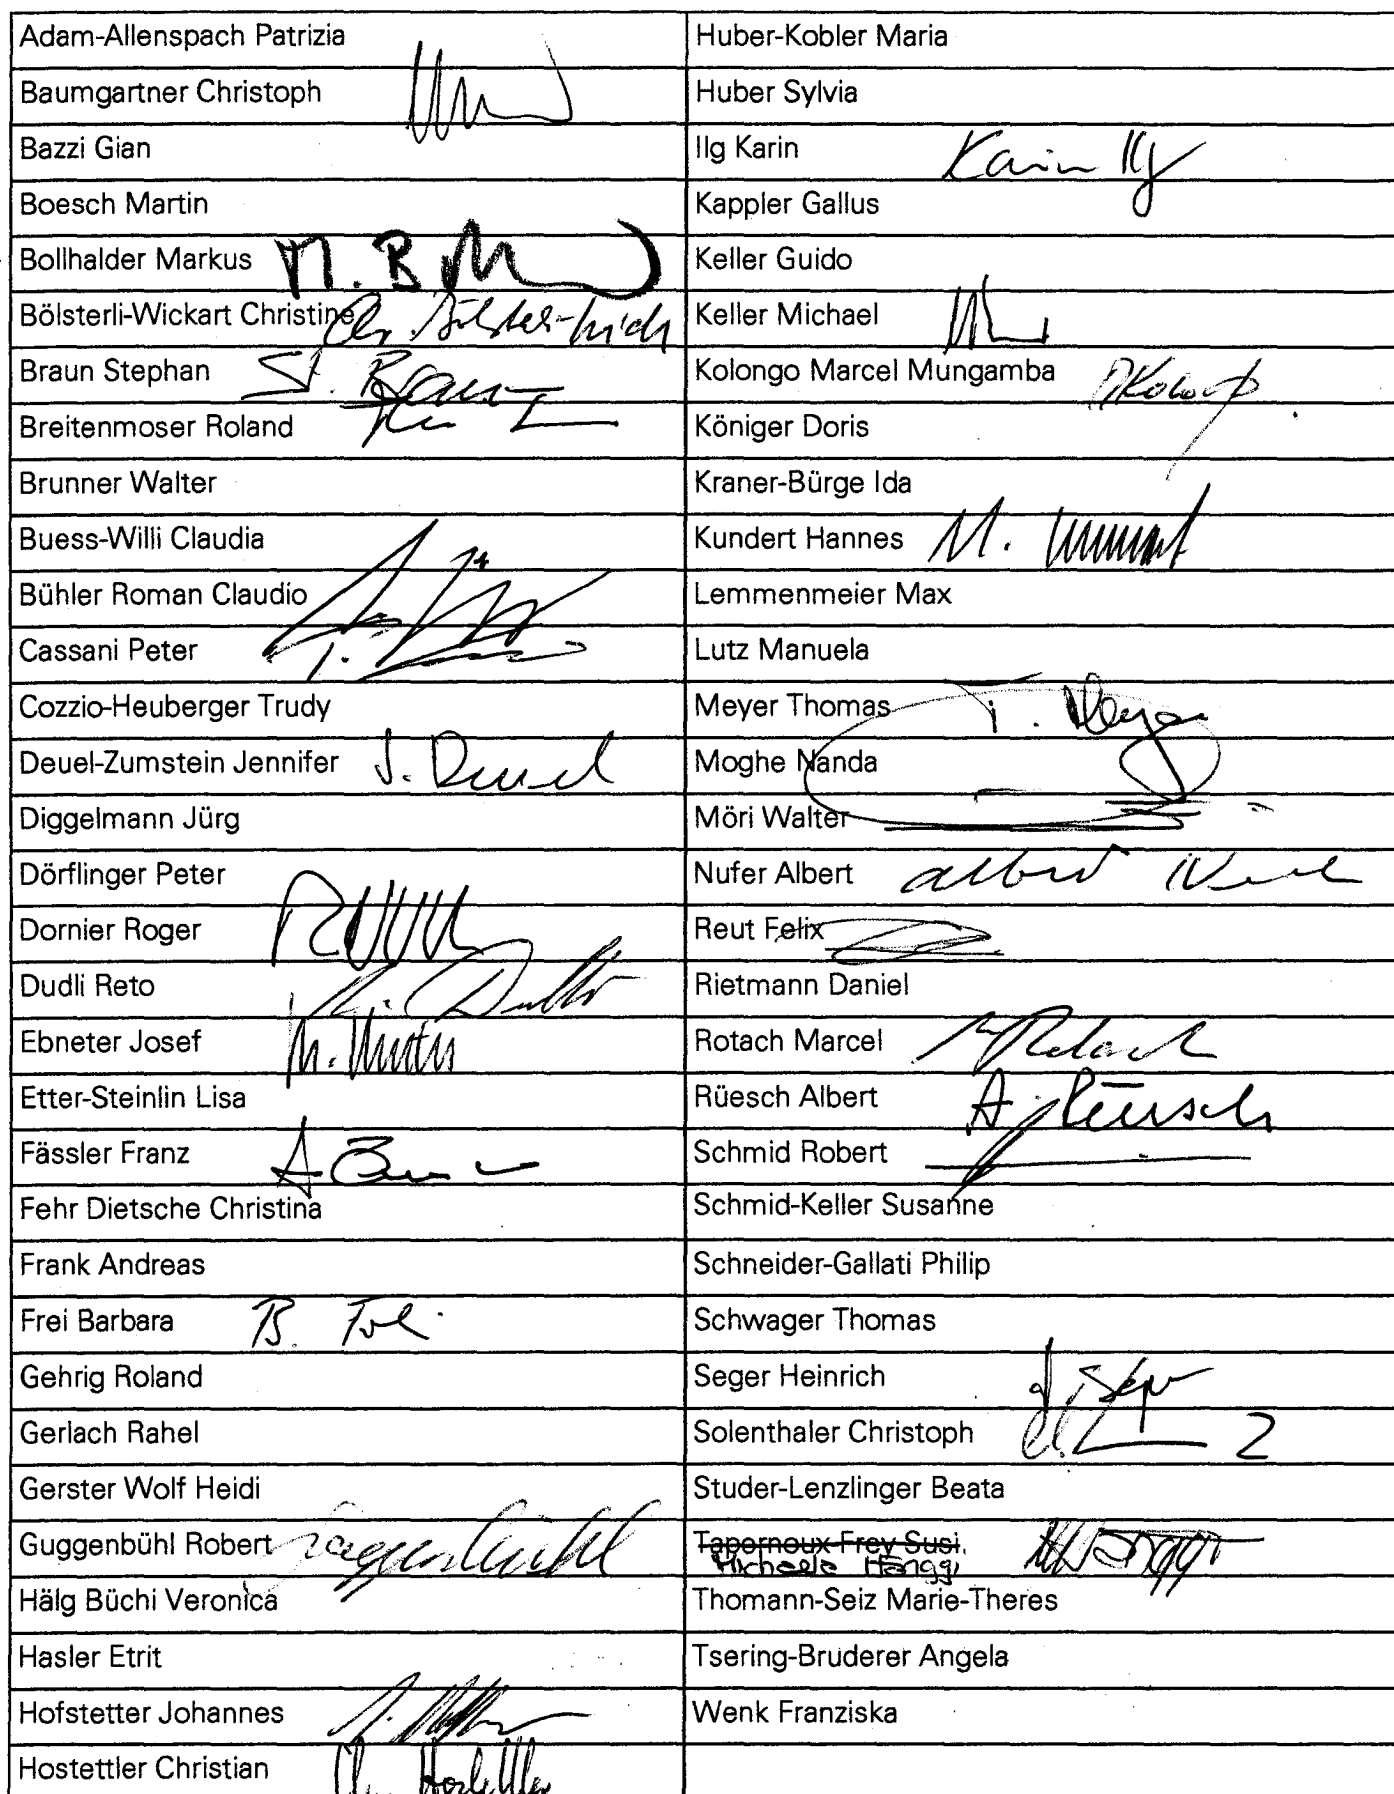 Adam-Allenspach Patrizia
Baumgartner Christoph
Bazzi Gian
Boesch Martin
Bollhalder Markus M. B
Bölsterli-Wickart Christine
Braun Stephan
Breitenmoser Roland
Brunner Walter
Buess-Willi Claudia
Bühler Roman Claudio
Cassani Peter
Cozzio-Heuberger Trudy
Deuel-Zumstein Jennifer J. Deuel
Diggelmann Jürg
Dörflinger Peter
Dornier Roger
Dudli Reto
Ebneter Josef
Etter-Steinlin Lisa
Fässler Franz
Fehr Dietsche Christina
Frank Andreas
Frei Barbara B. Frei
Gehrig Roland
Gerlach Rahel
Gerster Wolf Heidi
Guggenbühl Robert Guggenbühl
Hälg Büchi Veronica
Hasler Etrit
Hofstetter Johannes
Hostettler Christian Chr. Hostettler
Huber-Kobler Maria
Huber Sylvia
Ilg Karin Karin Ilg
Kappler Gallus
Keller Guido
Keller Michael
Kolongo Marcel Mungamba
Königer Doris
Kraner-Bürge Ida
Kundert Hannes
Lemmenmeier Max
Lutz Manuela
Meyer Thomas T. Meyer
Moghe Nanda
Möri Walter
Nufer Albert Albert
Reut Felix
Rietmann Daniel
Rotach Marcel M Rotach
Rüesch Albert A. Rüesch
Schmid Robert
Schmid-Keller Susanne
Schneider-Gallati Philip
Schwager Thomas
Seger Heinrich H. Seger
Solenthaler Christoph
Studer-Lenzlinger Beata
Tapernoux-Frey Susi
Michaela Hänggi
Thomann-Seiz Marie-Theres
Tsering-Bruderer Angela
Wenk Franziska